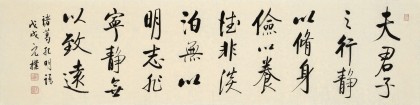 夫君子
之行静
以脩身
儉以養
德非淡
泊無以
明志非
寧静無
以致遠
諸葛孔明語
戊戌元